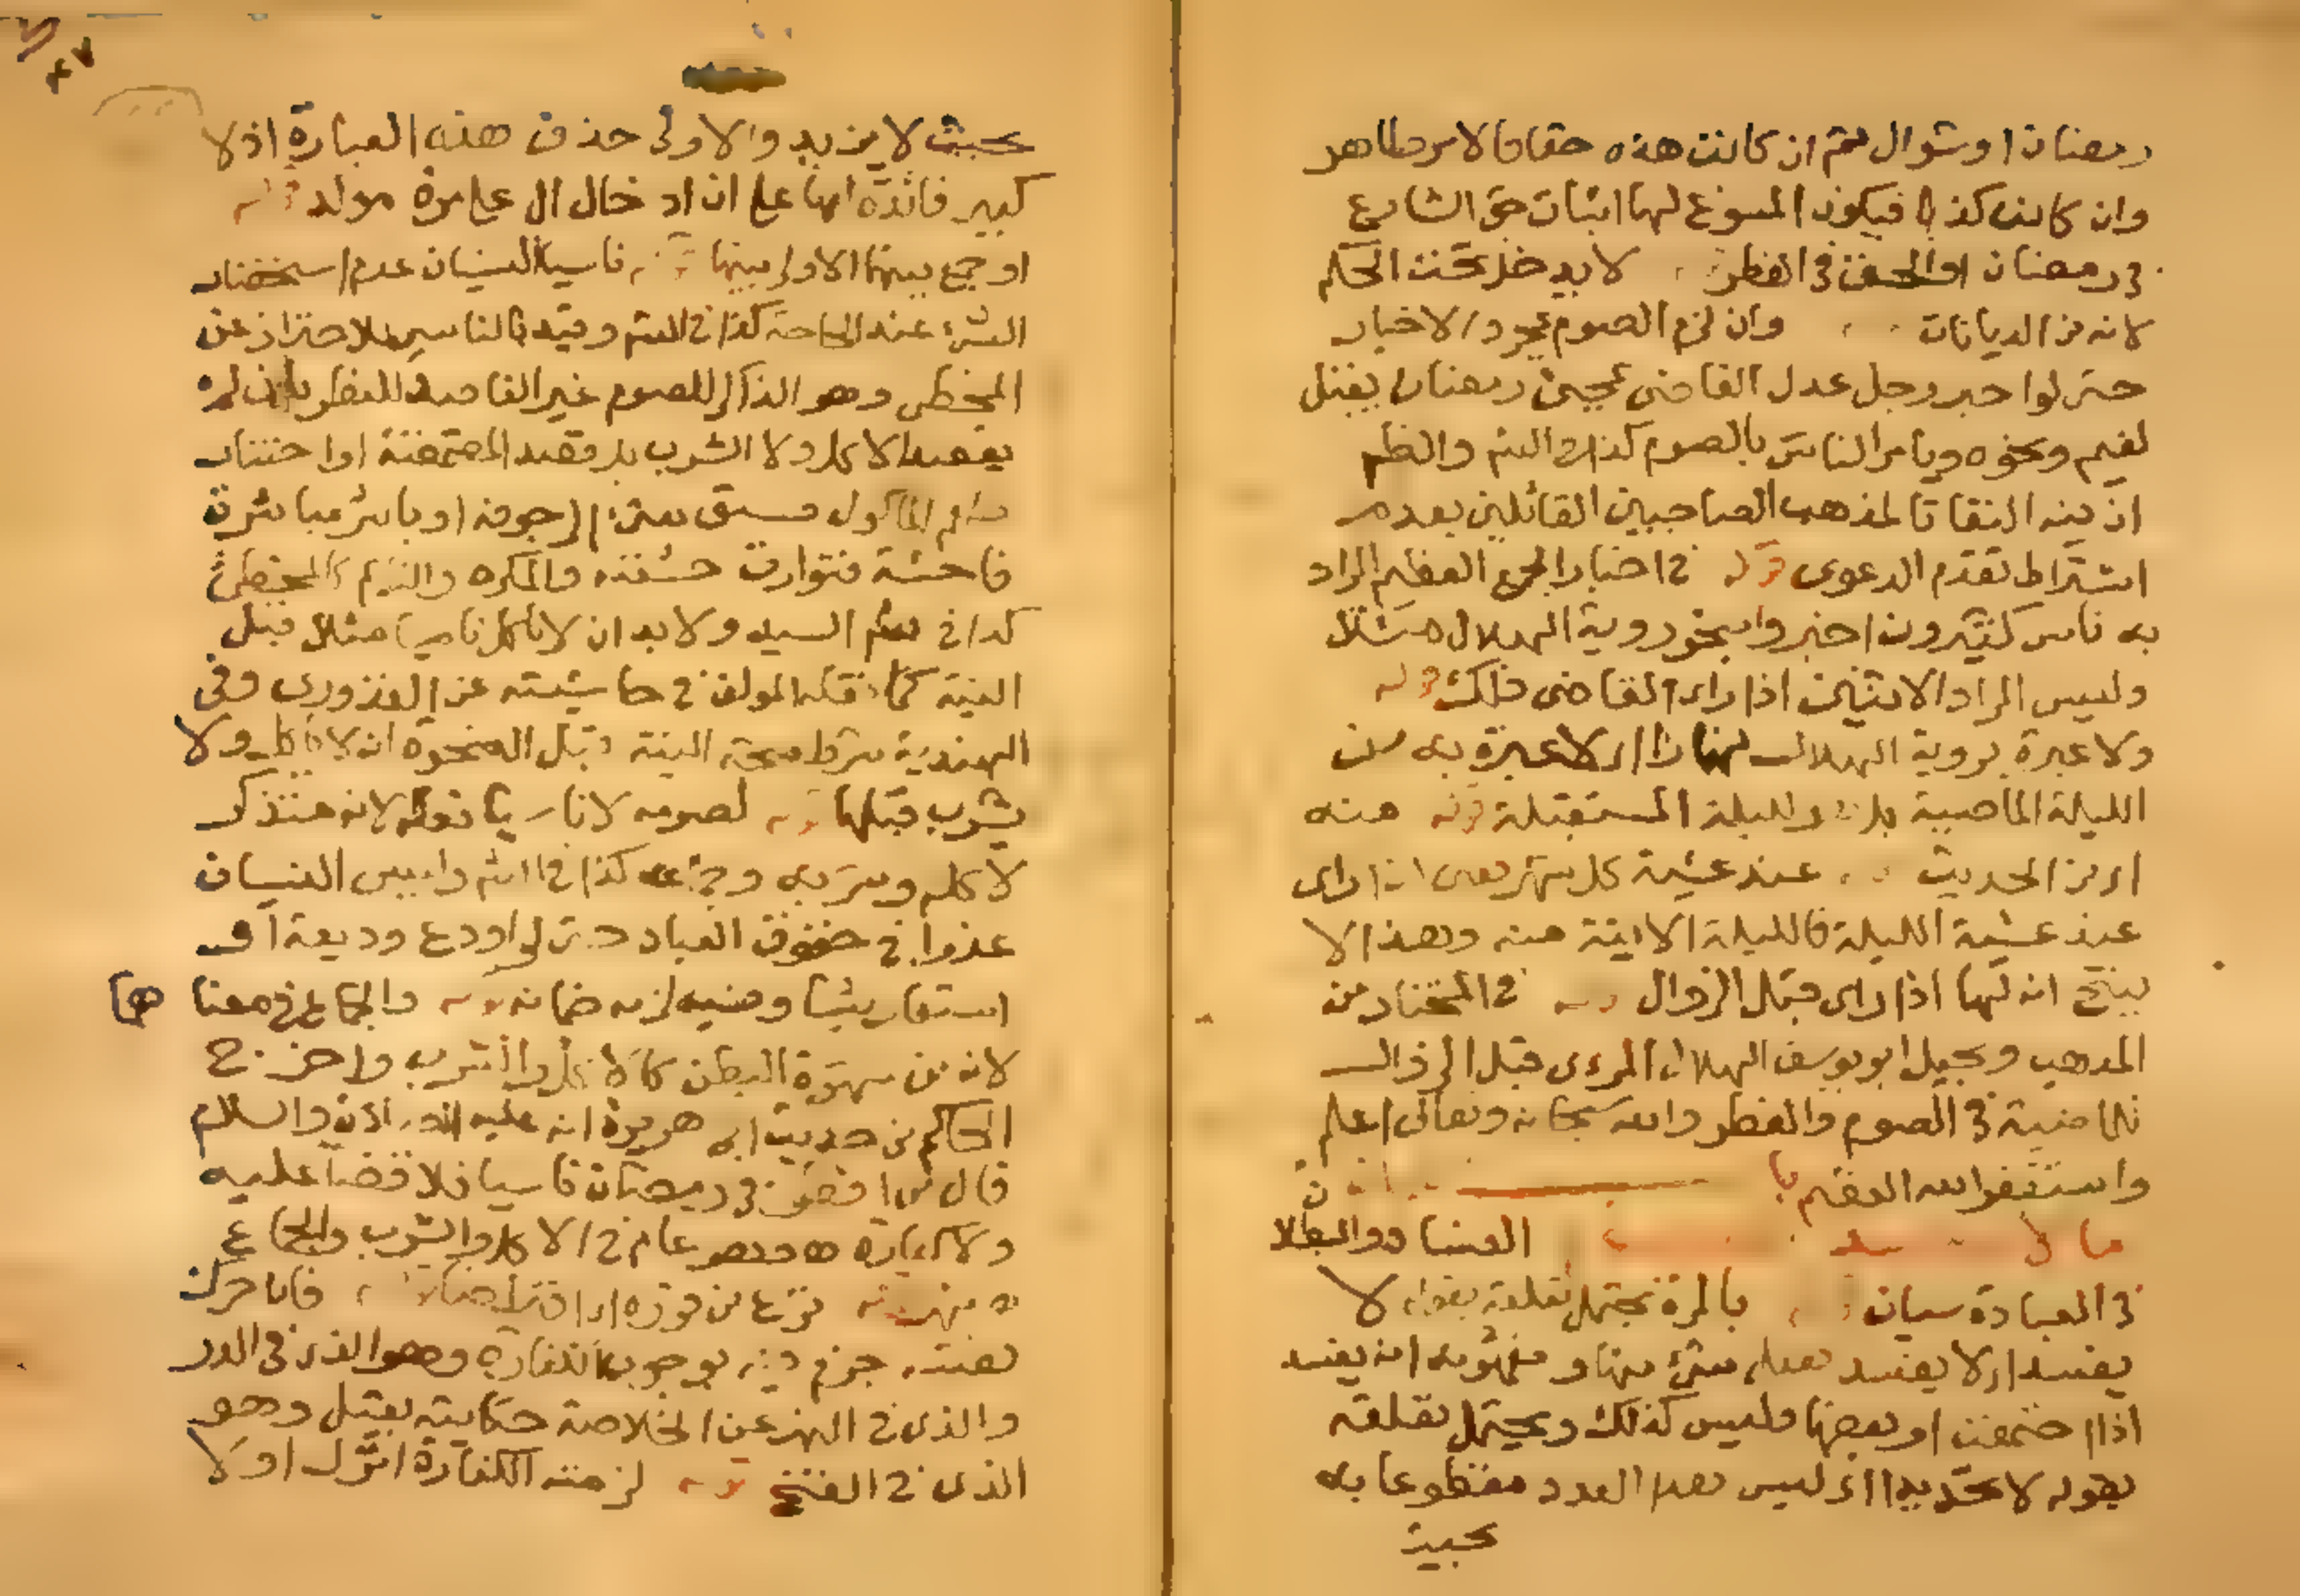 رمضان او شوال ثم ان كانت هذه حقا فالامر ظاهر
وان كانت كذبا فيكون المسوغ لها اثبات حق الشارع
في رمضان في الفطر لا يدخل تحت الحكم
لانه من الديانات وان لزم الصوم بمجرد الاخبار
حتى لو اخبر رجل عدل القاضي بمجئ رمضان يقبل
لغيم ونحوه ويامر الناس بالصوم كذا في والظم
ان فيه التفاتا لمذهب الصاحبين القائلين بعدم
اشتراط تقدم الدعوى قوله في اخبار الجمع العظيم المراد
به ناس كثيرون اخبروا بنحو روية الهلال مثلا
وليس المراد الاثنين اذا راى القاضي ذلك قوله
ولا عبرة بروية الهلال نهارا اى لا عبرة به من
الليلة الماضية بل الليلة المستقبلة قوله منه
اى من الحديث عند عشية كل شهر يعنى اذا راى
عند عشية الليلة فالليلة الاتية منه وهذا لا
ينتج انه لها اذا راى قبل الزوال قوله في المختار من
المذهب ويجعل ابو يوسف الهلال المرءى قبل الزوال
للماضية في الصوم والفطر والله سبحانه وتعالى اعلم
واستغفر الله العظيم با
ما الفساد والبطلا ن
في العبادة سيان بالمرة يحتمل تعلقه بقوله لا
يفسد اى لا يفسد شئ منها ومفهومه انه يفسد
اذا اجتمعت او بعضها وليس كذلك ويحتمل تعلقه
بقوله لا اى ليس العدد مقطوعا به
بحيث
بحيث لا يزيد والاولى حذف هذه العبارة اذ لا
كبير فائدة على ان ادخال ال على مرة مولد قوله
او جمع بينها الاولى بينهما قوله ناسيا النسيان عدم استحضار
الشئ عند الحاجة كذا في وقيد بالناسي للاحتراز عن
المخطى وهو الذاكر للصوم غير القاصد للفطر بان لم
يقصد الاكل ولا الشرب بل قصد المضمضة او اختبار
طعم الماكول فسبق شئ الى جوفه او باشر مباشرة
فاحشة فتوارت حشفته والمكره والنائم كالمخطئ
كذا في السيد ولا بد ان لا ياكل ناسيا مثلا قبل
النية كما نقله المولف في حاشيته عن القدورى وفى
الهندية شرط صحة النية قبل الضحوة ان لا ياكل ولا
يشرب قبلها قوله لصومه لا ناسيا لانه متذكر
لاكله وشربه كذا في وليس النسيان
عذرا في حقوق العباد حتى لو اودع وديعة او
استعار شيئا ونسيه لزمه ضمانه قوله والجماع في معنا ها
لانه من شهوة البطن كالاكل والشرب واخرج
الحاكم من حديث ابى هريرة انه عليه الصلاة والسلام
قال من افطر في رمضان ناسيا فلا قضا عليه
ولا كفارة وهو عام في الاكل والشرب والجماع
نزع من فوره فانا حرك
نفسه جزم بوجوب الكفارة وهو الذى في الدر
والذى في النهر عن الخلاصة حكايته بقيل وهو
الذى في الفتح قوله لزمته الكفارة انزل او لا